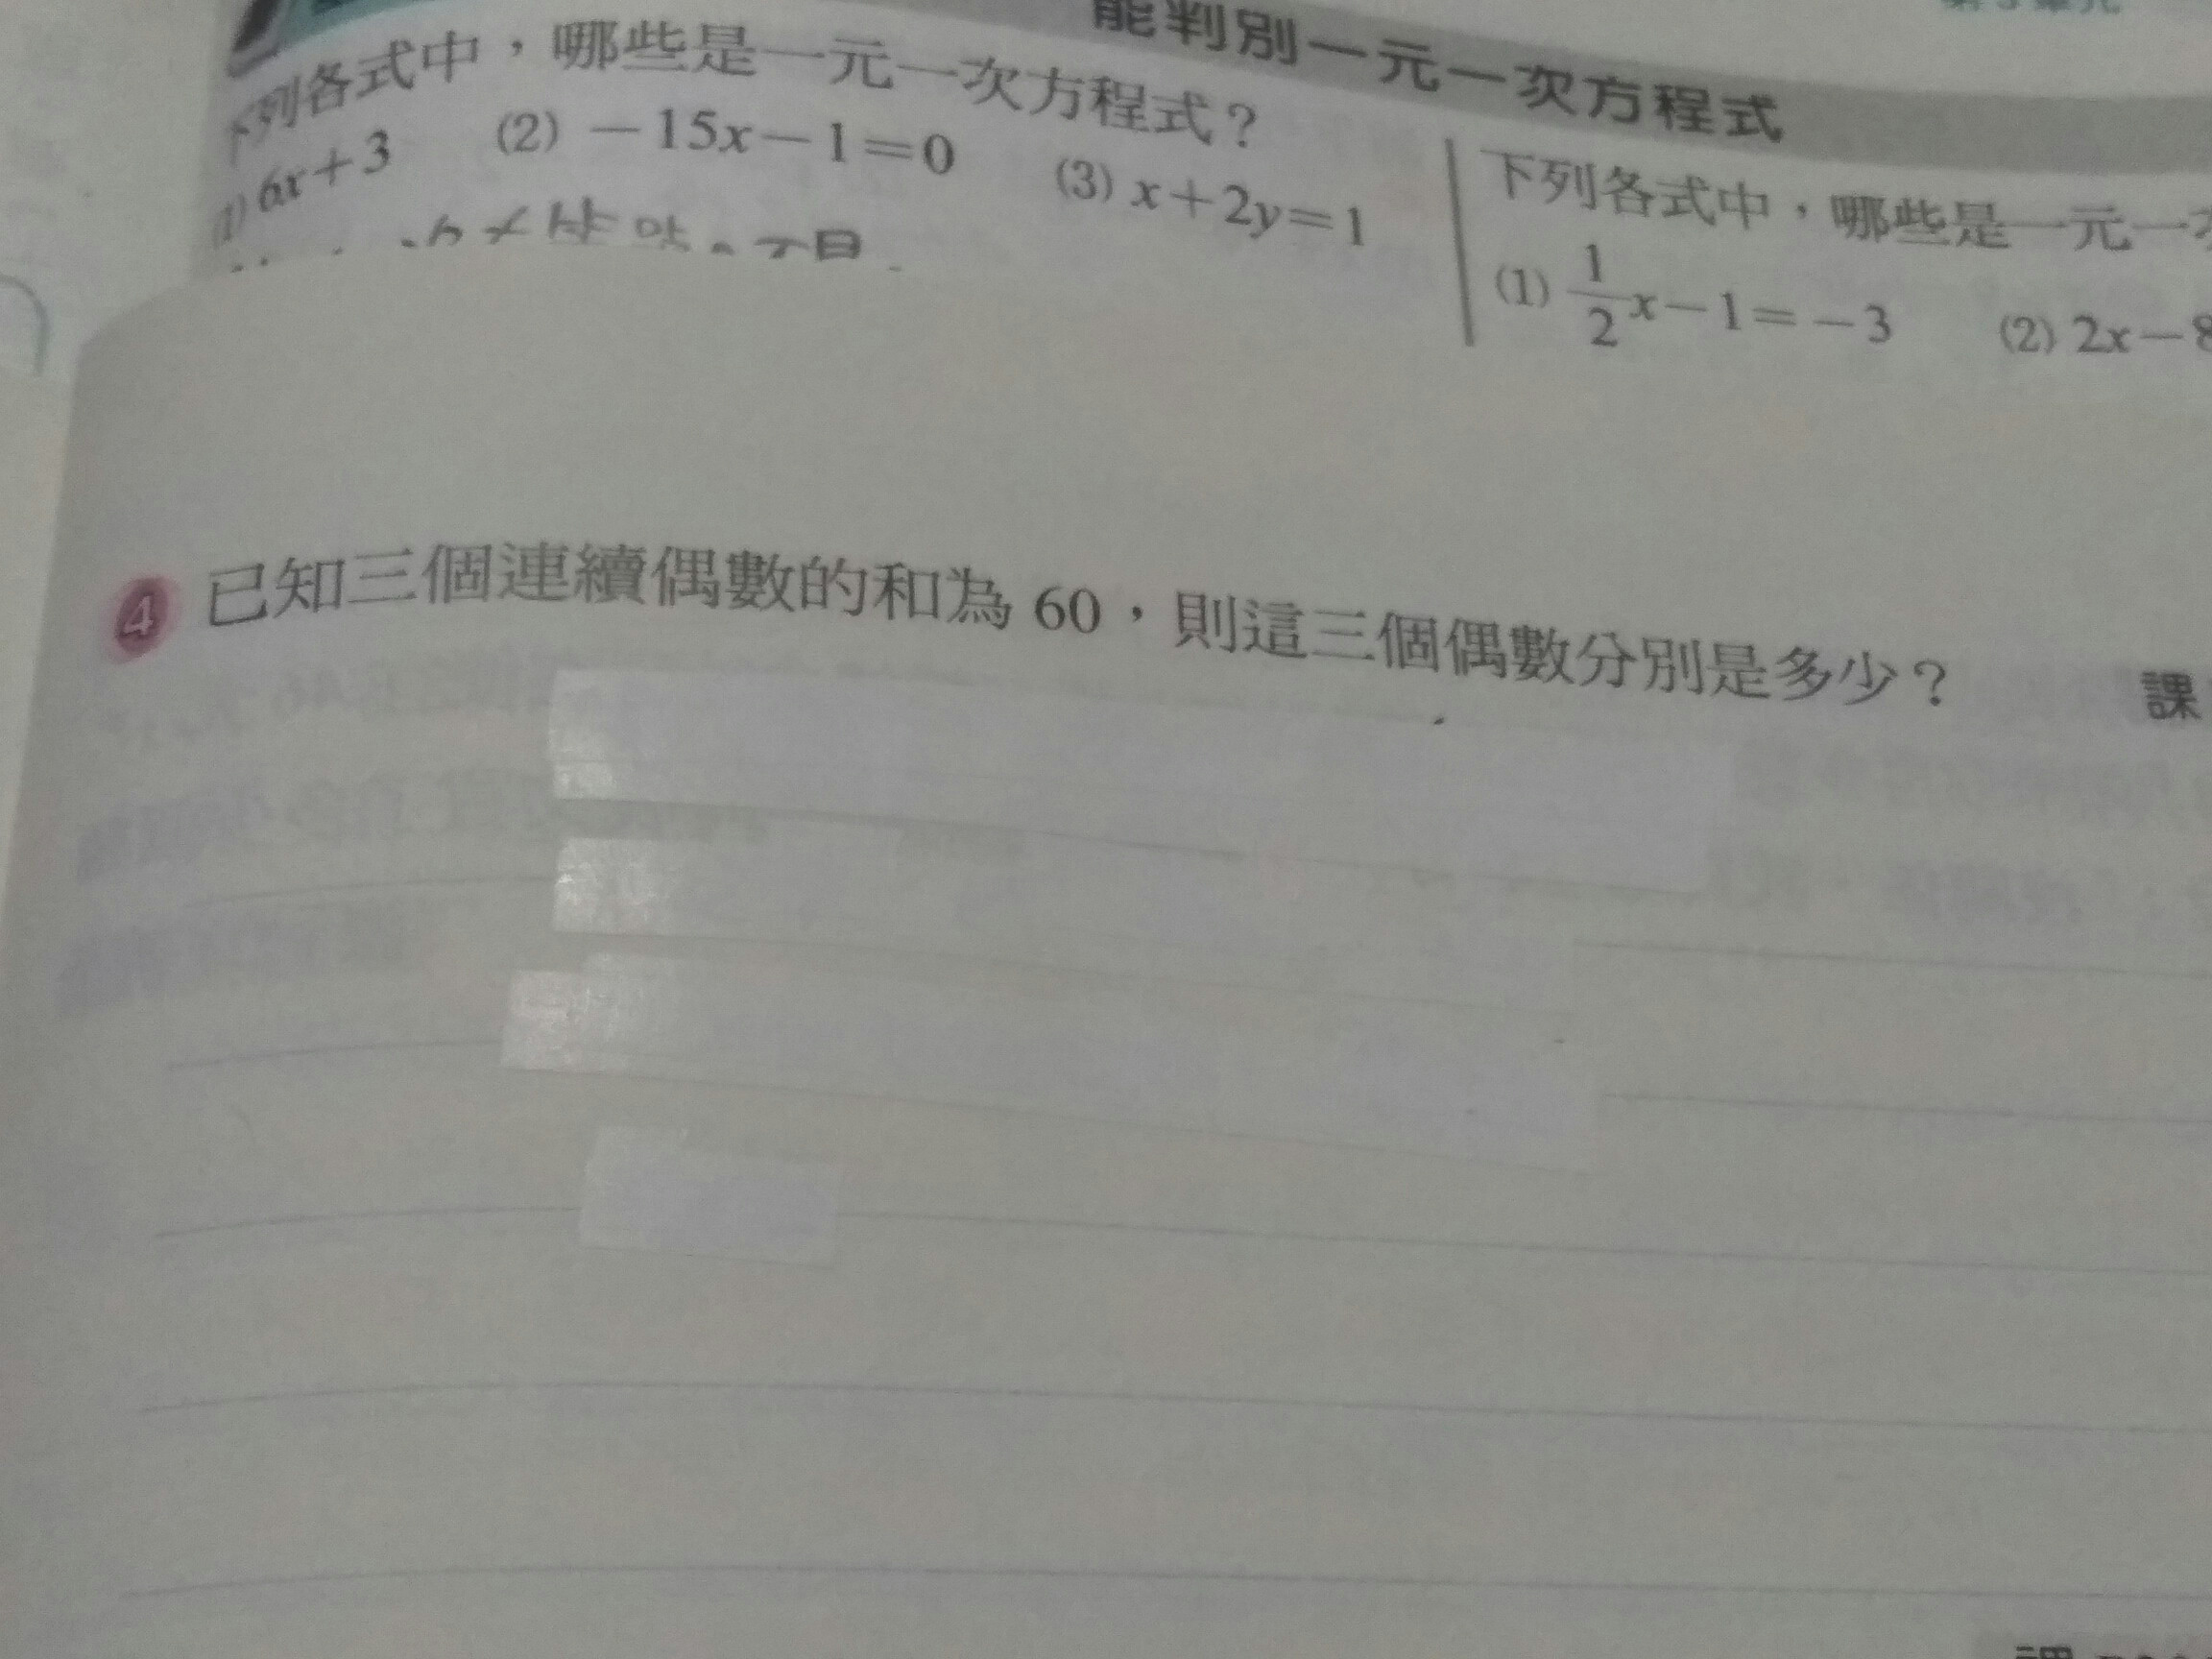 能判別一元一次方程式
下列各式中，哪些是一元一次方程式？
(1) 6x+3 (2) －15x－1＝0 (3) x＋2y＝1
下列各式中，哪些是一元一
(1) 1/2 x－1＝－3 (2) 2x－8
4 已知三個連續偶數的和為 60，則這三個偶數分別是多少？ 課